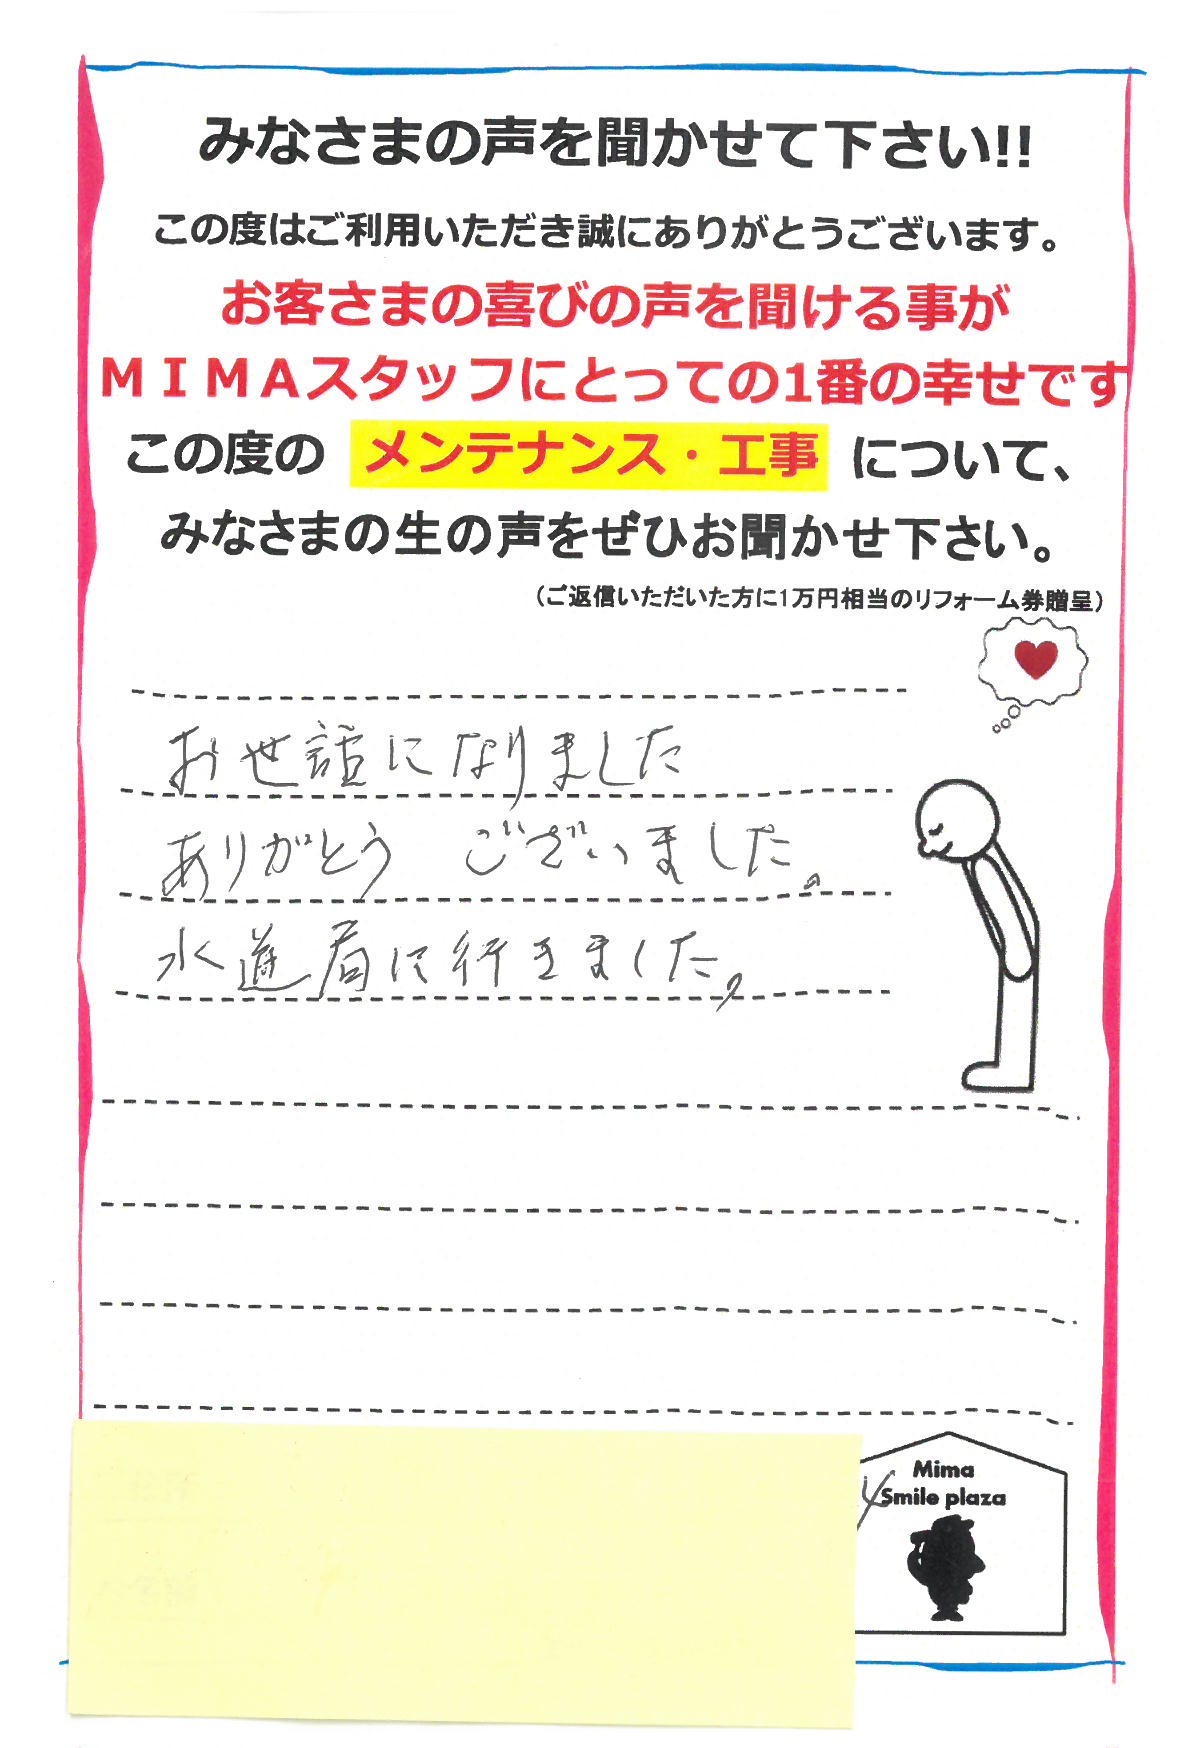 みなさまの声を聞かせて下さい!!
この度はご利用いただき誠にありがとうございます。
お客さまの喜びの声を聞ける事が
ＭＩＭＡスタッフにとっての1番の幸せです
この度の メンテナンス・工事 について、
みなさまの生の声をぜひお聞かせ下さい。
（ご返信いただいた方に1万円相当のリフォーム券贈呈）
お世話になりました
ありがとう ございました。
水道局に行きました。
Mima
Smile plaza